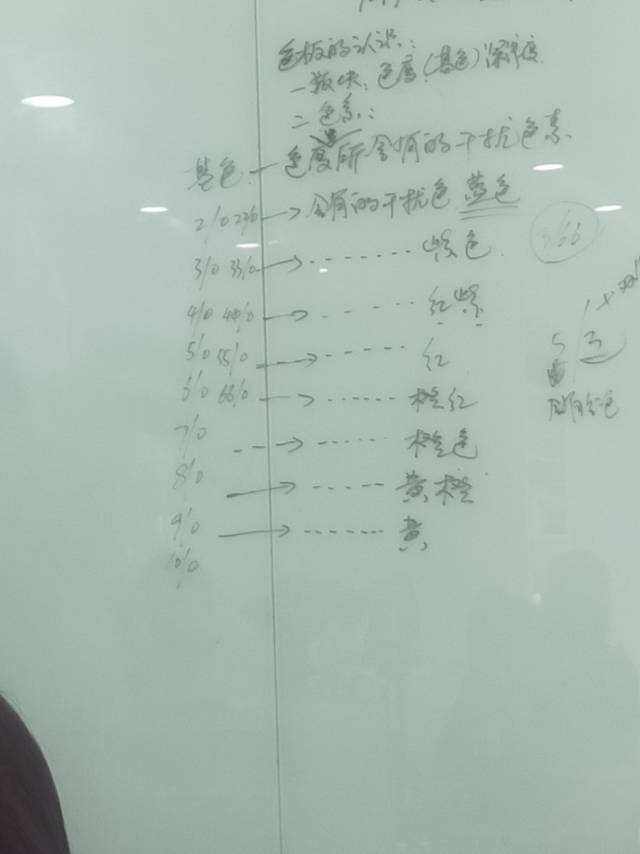 色板的认识:
一 板块: 色度(基色)深浅度
二 色素:
基色 — 色度所含有的干扰色素
2/0 22/0 → 含有的干扰色 蓝色
3/0 33/0 → ------- 紫色
3/66
4/0 44/0 → ------ 红紫
5/0 55/0 → ----- 红
5/3
6/0 66/0 → ------ 橙红
7/0 --→ ------ 橙色
8/0 → ------ 黄橙
9/0 → ------- 黄
10/0